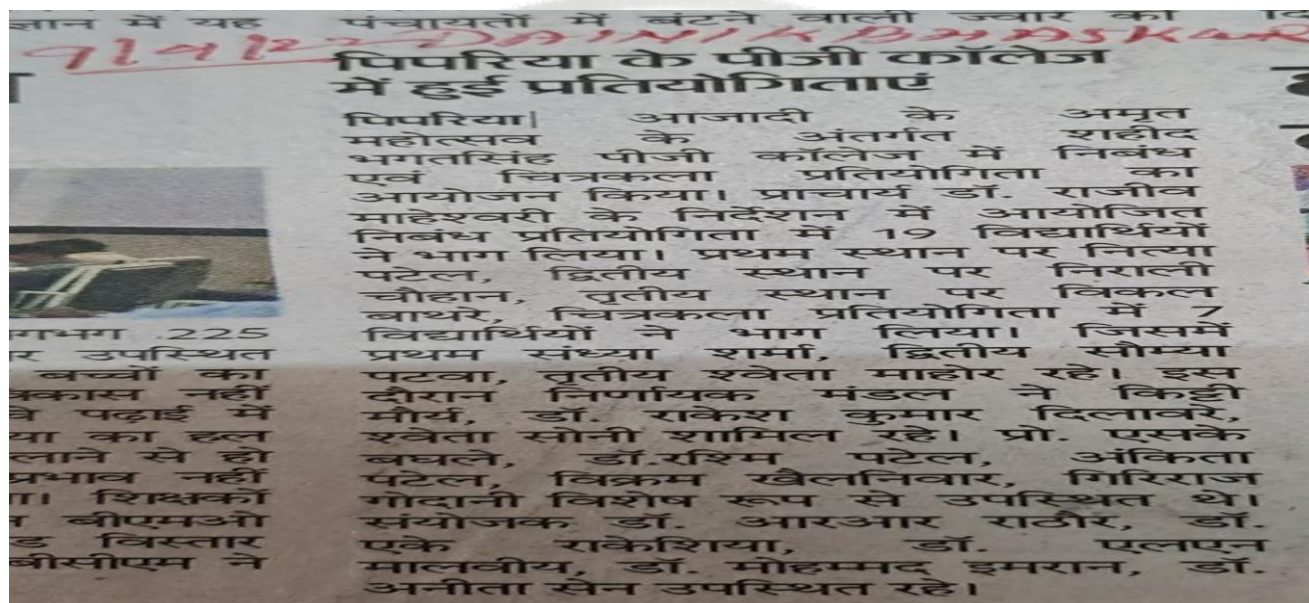 ज्ञान में यह
पंचायतों में बंटने वाली ज्वार की
9/4/22 DAINIK BHASKAR
पिपरिया के पीजी कॉलेज
में हुई प्रतियोगिताएं
पिपरिया| आजादी के अमृत
महोत्सव के अंतर्गत शहीद
भगतसिंह पीजी कॉलेज में निबंध
एवं चित्रकला प्रतियोगिता का
आयोजन किया। प्राचार्य डॉ. राजीव
माहेश्वरी के निर्देशन में आयोजित
निबंध प्रतियोगिता में 19 विद्यार्थियों
ने भाग लिया। प्रथम स्थान पर नित्या
पटेल, द्वितीय स्थान पर निराली
चौहान, तृतीय स्थान पर विकल
बाथरे, चित्रकला प्रतियोगिता में 7
विद्यार्थियों ने भाग लिया। जिसमें
प्रथम संध्या शर्मा, द्वितीय सौम्या
पटवा, तृतीय श्वेता माहोर रहे। इस
दौरान निर्णायक मंडल ने किट्टी
मौर्य, डॉ. राकेश कुमार दिलावरे,
श्वेता सोनी शामिल रहे। प्रो. एसके
बघले, डॉ.रश्मि पटेल, अंकिता
पटेल, विक्रम खैलनिवार, गिरिराज
गोदानी विशेष रूप से उपस्थित थे।
संयोजक डॉ. आरआर राठौर, डॉ.
एके राकेशिया, डॉ. एलएन
मालवीय, डॉ. मोहम्मद इमरान, डॉ.
अनीता सेन उपस्थित रहे।
.225
उपस्थित
बच्चों का
नहीं
पढ़ाई में
का हल
लाने से ही
प्रभाव नहीं
शिक्षकों
बीएमओ
विस्तार
बीसीएम ने